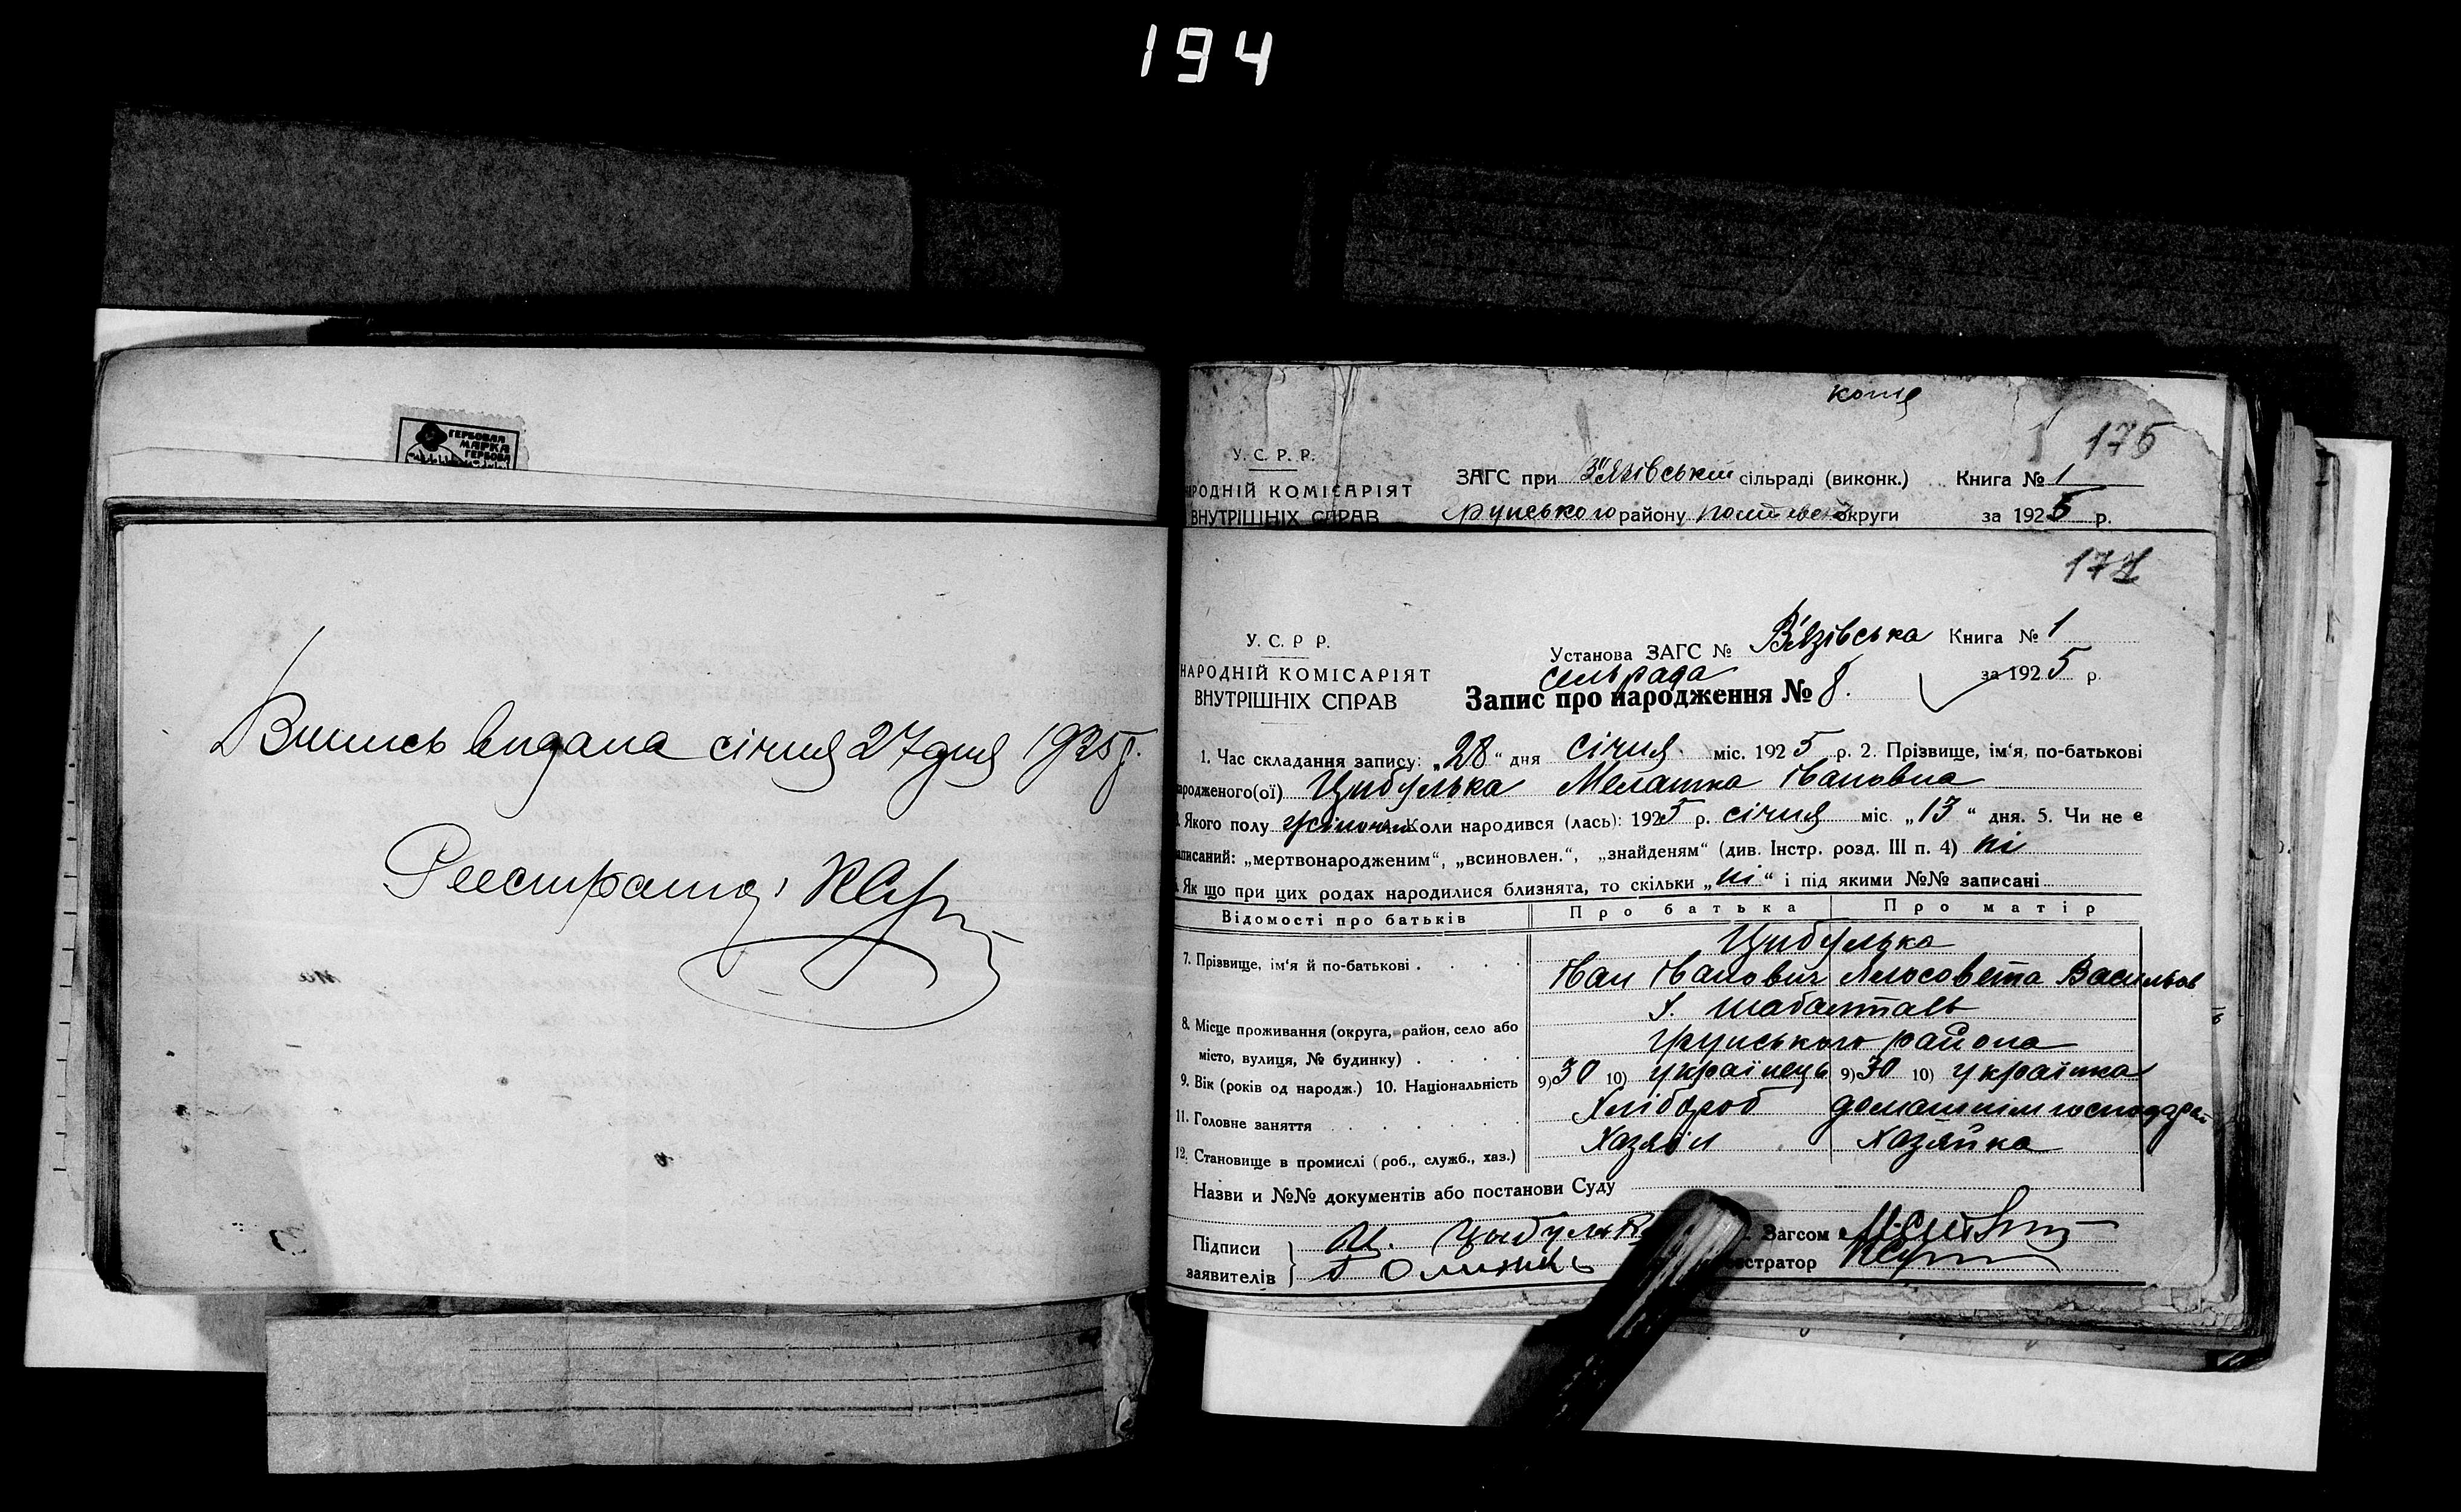 194
ГЕРБОВАЯ
МАРКА
ГЕРБОВА
Випись видана січня 27 дня 1925 р.
Реєстратор
копія
176
У. С. Р. Р.
НАРОДНІЙ КОМІСАРІЯТ
ВНУТРІШНІХ СПРАВ
ЗАГС при В'язівській сільраді (виконк.) Книга № 1
Грунського району округи за 1925 р.
177
У. С. Р Р.
НАРОДНІЙ КОМІСАРІЯТ
ВНУТРІШНІХ СПРАВ
Установа ЗАГС № В'язівська Книга № 1
сельрада за 1925 р.
Запис про народження № 8.
1. Час складання запису: „28“ дня січня міс. 1925 р. 2. Прізвище, ім'я, по-батькові
народженого(ої) Цибулька Мелашка Івановна
Якого полу жіночого Коли народився (лась): 1925 р. січня міс. „13“ дня. 5. Чи не є
записаний: „мертвонародженим“, „всиновлен.“, „знайденям“ (див. Інстр. розд. III п. 4) ні
Як що при цих родах народилися близнята, то скільки „ні“ і під якими №№ записані
Відомості про батьків Про батька Про матір
Цибулька
7. Прізвище, ім'я й по-батькові Іван Іванович Васильов
8. Місце проживання (округа, район, село або
місто, вулиця, № будинку) Грунського района
9. Вік (років од народж.) 10. Національність 9) 30 10) українець 9) 30 10) українка
11. Головне заняття Хлібороб домашнім господарст
12. Становище в промислі (роб., служб., хаз.) Хазяїн Хазяйка
Назви и №№ документів або постанови Суду
Підписи
заявителів
Загсом
стратор